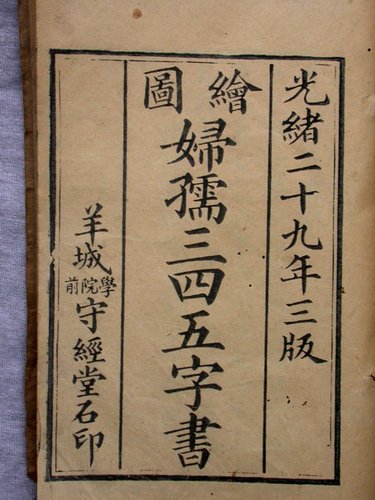 光緒二十九年三版
繪圖
婦孺三四五字書
羊城學院前守經堂石印